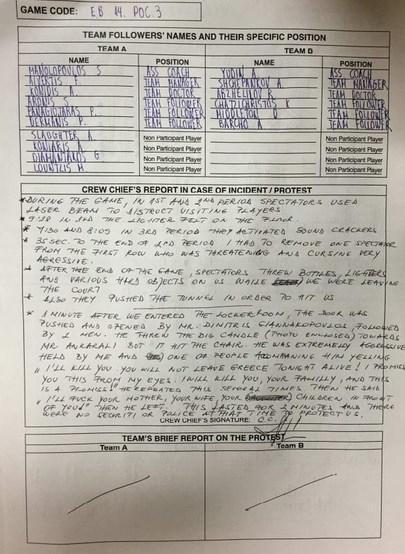 GAME CODE: EB 14. POC. 3
TEAM FOLLOWERS' NAMES AND THEIR SPECIFIC POSITION
TEAM A TEAM B
NAME POSITION NAME POSITION
MANOLOPOULOS S ASS COACH YUDIN A. ASS COACH
ALVERTIS F. TEAM MANAGER SHCHERBAKOV A TEAM MANAGER
TEAM DOCTOR ABZHELILOV R TEAM DOCTOR
TEAM FOLLOWER CHATZICHRISTOS K TEAM FOLLOWER
PANAGIOTARAS TEAM FOLLOWER MIDDLETON D TEAM FOLLOWER
TEAM FOLLOWER BARCHO A TEAM FOLLOWER
SLAUGHTER A Non Participant Player Non Participant Player
KONIARIS A Non Participant Player Non Participant Player
DIAMANTAKOS G Non Participant Player Non Participant Player
LOUNTZIS N Non Participant Player Non Participant Player
CREW CHIEF'S REPORT IN CASE OF INCIDENT / PROTEST
* DURING THE GAME, IN 1ST AND 2ND PERIOD SPECTATORS USED
LASER BEAM TO DISTRUCT VISITING PLAYERS
* 9:38 IN 3RD THE LIGHTER FELT ON THE FLOOR.
* 4:30 AND 8:09 IN 3RD PERIOD THEY ACTIVATED SOUND CRACKERS
* 35 SEC. TO THE END OF 2ND PERIOD I HAD TO REMOVE ONE SPECTATOR
FROM THE FIRST ROW WHO WAS THREATENING AND CURSING VERY
AGRESSIVE.
* AFTER THE END OF THE GAME, SPECTATORS THREW BOTTLES, LIGHTERS
AND VARIOUS HARD OBJECTS ON US WHILE WE WERE LEAVING
THE COURT
* ALSO THEY PUSHED THE TUNNEL IN ORDER TO HIT US
* 1 MINUTE AFTER WE ENTERED THE LOCKERROOM, THE DOOR WAS
PUSHED AND OPENED BY MR. DIMITRIS GIANNAKOPOULOS, FOLLOWED
BY 2 MEN. HE THREW THE BIG CANDLE (PHOTO ENCLOSED) TOWARDS
MR. ANKARALI BUT IT HIT THE CHAIR. HE WAS EXTREMELY AGGRESSIVE
HELD BY ME AND ONE OF PEOPLE ACOMPANING HIM YELLING
"I'LL KILL YOU, YOU WILL NOT LEAVE GREECE TONIGHT ALIVE! I PROMISE
YOU THIS FROM MY EYES. I WILL KILL YOU, YOUR FAMILY, AND THIS
IS A PROMISS! HE REPEATED THIS SEVERAL TIMES. THEN HE SAID
"I'LL FUCK YOUR MOTHER, YOUR WIFE, YOUR CHILDREN IN FRONT
OF YOU" THEN HE LEFT. THIS LASTED FOR 2 MINUTES AND THERE
WERE NO SECURITY OR POLICE AT THAT TIME TO PROTECT US.
CREW CHIEF'S SIGNATURE: C.C.
TEAM'S BRIEF REPORT ON THE PROTEST
Team A Team B